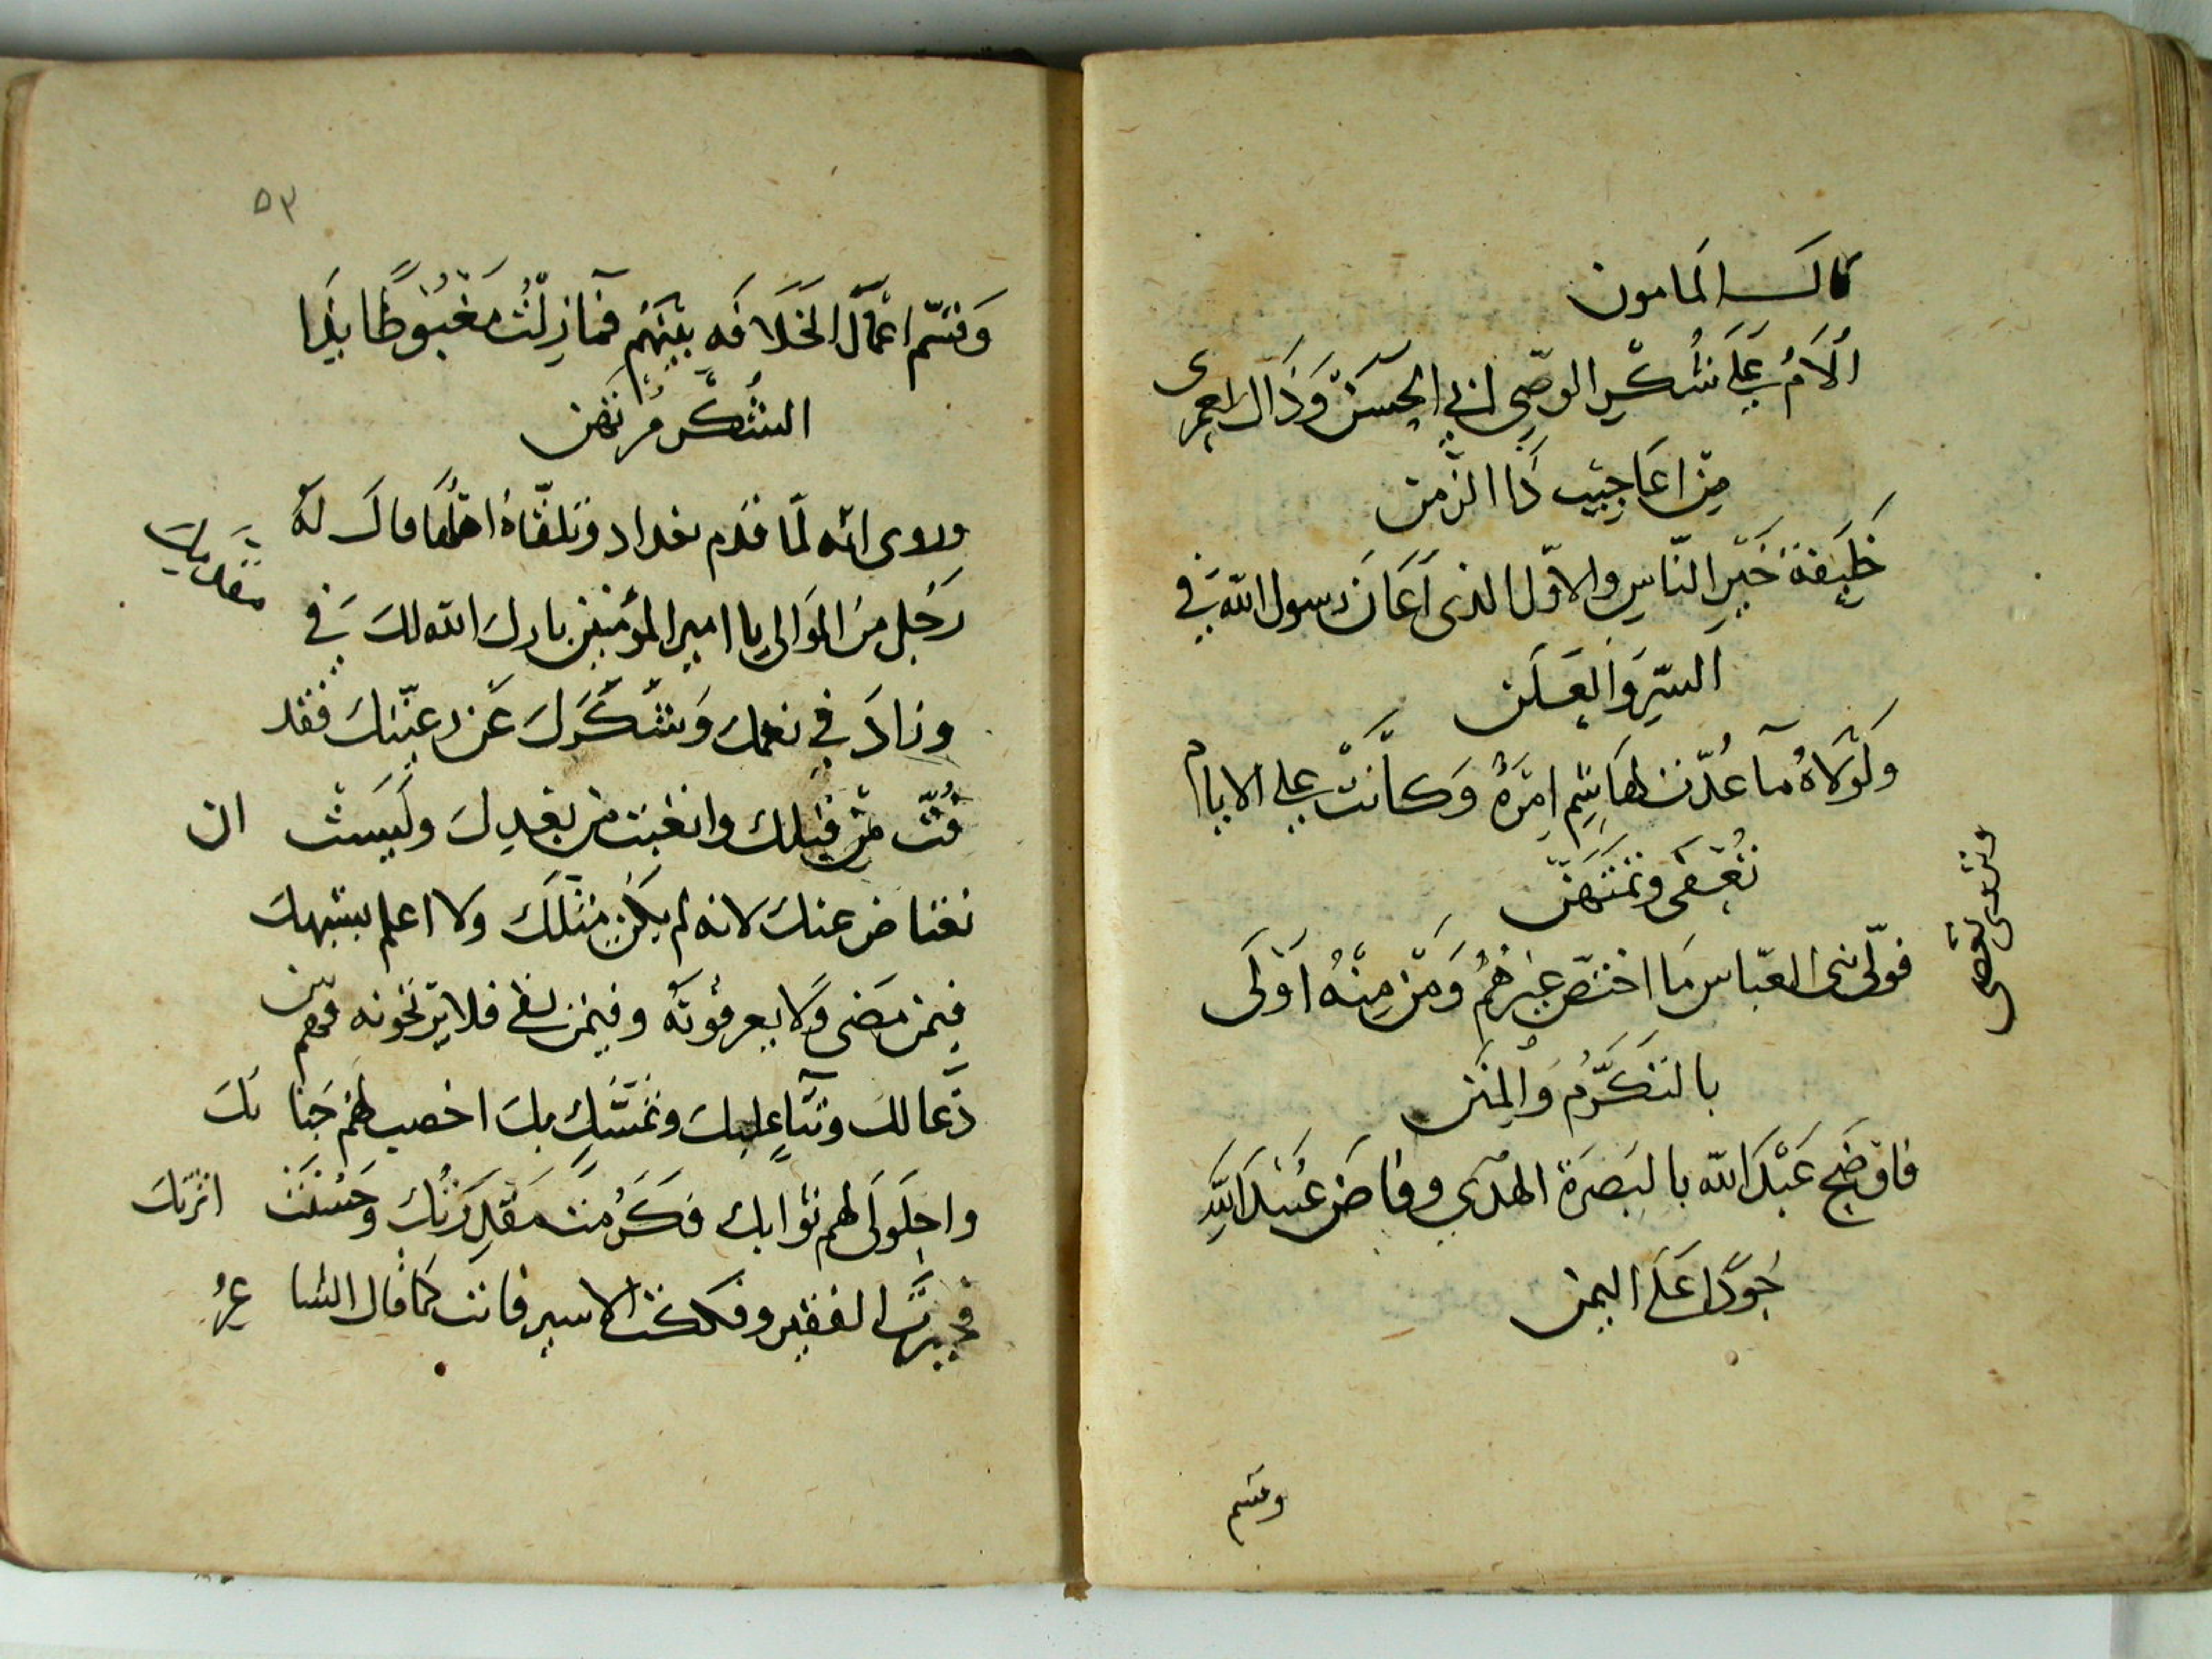 قال المامون
أُلَامُ عَلَى شُكْرِ الوصّي ابي الحسَنْ وَذَاك لعمرى
مِن اعَاجِيبِ ذَا الزمن
خَليفة خَيْرِ النّاسِ والاوّل الذى أعَانَ رسول الله في
السّرِ وَالعَلَن
وَلَوْلَاهُ مآ عُدّت لهَاشِم امِرَةٌ وَكاَنَتْ على الايام
تُقصَى وتمتَهَنْ
فولّى بنى العبّاس مَا اختصّ غيرَهُم وَمَنْ مِنْهُ اَوْلَى
بالتكَرُّم وَالمِنَن
فاوضَح عَبْدَ الله بالبَصَرَة الهدَي وفاضَ عُبَيْدَ الله
جُودًا عَلَى اليمن
وقسم
٥٣
وَقسّم اعْمَالَ الخَلَافَه بَيْنَهُم فمَا زِلْتُ مَغْبُوطًا بِذَا
الشُكْر مُرتَهَن
وروى انه لمّا قدم بغداد وتلقّاهُ اهْلُها قال لَهُ
رَجُل مِنَ المَوَالى يا امير المؤمنين بارك الله لكَ في
وزادَ في نعمك وَشكَرَكَ عَن رعيّتك فقد
فُتّ مَنْ قبلك واتعَبت من بعدِكَ وايَست ان
نعتاض عنك لانه لم يكن مثلكَ ولا اعلم بشبهك
فيمن مَضى وَلا يعرفونَه وفيمن بقى فلا يرتجونه فهم من
دُعا لك وثناءٍ عليكَ وتَمَسّكٍ بك اخصب لهم جَنابك
واحلَولَى لهم ثوابك فكَرُمَت مَقدِرَتُك وَحَسُنَت اثرتك
فجبرتَ الفقير وفككت الاسير فانت كما قال الشاعرُ